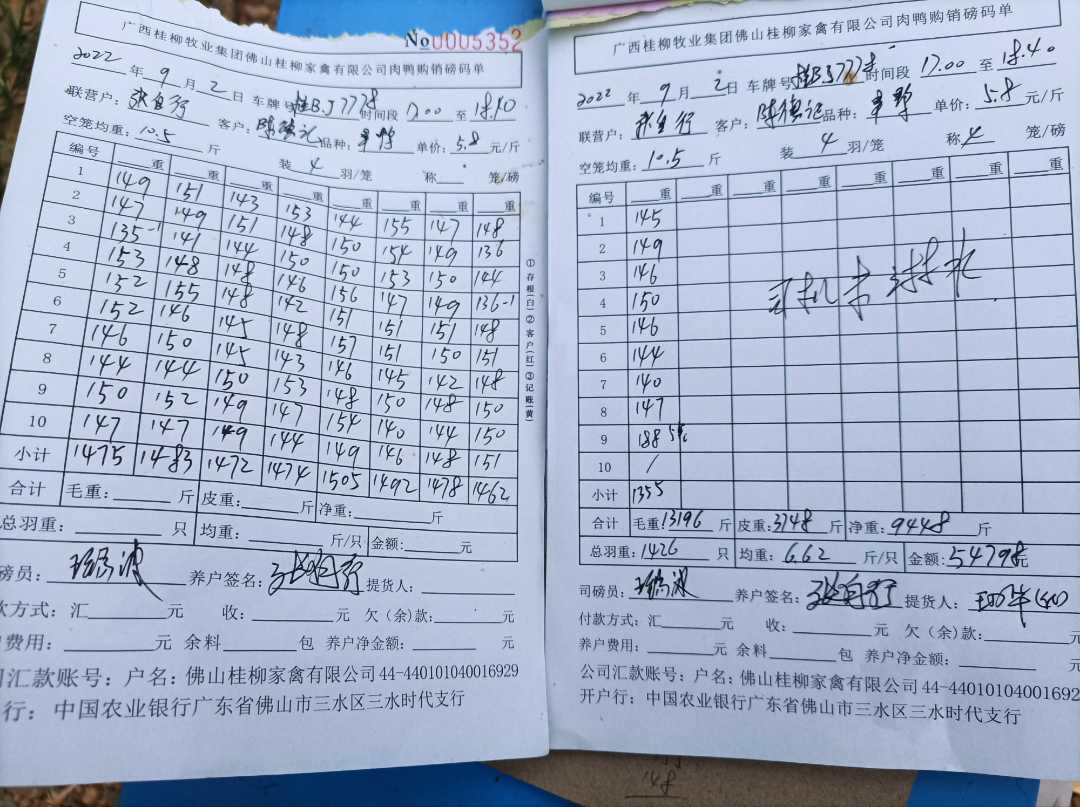 No0005352
广西桂柳牧业集团佛山桂柳家禽有限公司肉鸭购销磅码单
2022年9月2日 车牌号桂BJ7778时间段17.00至18.40
联营户： 客户：陈德记品种： 单价：5.8元/斤
空笼均重：10.5斤 装4羽/笼 称 笼/磅
编号 重 重 重 重 重 重 重 重
1 149 151 143 153 144 155 147 148
2 147 149 151 148 150 154 149 136
3 135-1 141 144 150 150 153 150 144
4 153 148 148 146 156 147 149 136-1
5 152 155 148 142 151 151 151 148
6 152 146 145 148 157 151 150 151
7 146 150 145 143 146 145 142 148
8 144 144 150 153 148 150 148 150
9 150 152 149 147 154 140 144 150
10 147 147 149 144 149 146 148 151
小计 1475 1483 1472 1474 1505 1492 1478 1462
合计 毛重： 斤 皮重： 斤 净重： 斤
总羽重： 只 均重： 斤/只 金额： 元
磅员： 养户签名： 提货人：
款方式：汇 元 收： 元 欠（余）款： 元
户费用： 元 余料 包 养户净金额： 元
司汇款账号：户名：佛山桂柳家禽有限公司 44-440101040016929
行：中国农业银行广东省佛山市三水区三水时代支行
①存根（白）②客户（红）③记账（黄）
广西桂柳牧业集团佛山桂柳家禽有限公司肉鸭购销磅码单
2022年9月2日 车牌号桂BJ7778时间段17.00至18.40
联营户： 客户：陈德记品种： 单价：5.8元/斤
空笼均重：10.5斤 装4羽/笼 称4笼/磅
编号 重 重 重 重 重 重 重 重
1 145
2 149
3 146
4 150
5 146
6 144
7 140
8 147
9 188
10 /
小计 1355
司机
合计 毛重：13196斤 皮重：3748斤 净重：9448斤
总羽重：1426只 均重：6.62斤/只 金额：54798元
司磅员： 养户签名： 提货人：
付款方式：汇 元 收： 元 欠（余）款： 元
养户费用： 元 余料 包 养户净金额： 元
公司汇款账号：户名：佛山桂柳家禽有限公司 44-44010104001692
开户行：中国农业银行广东省佛山市三水区三水时代支行
148